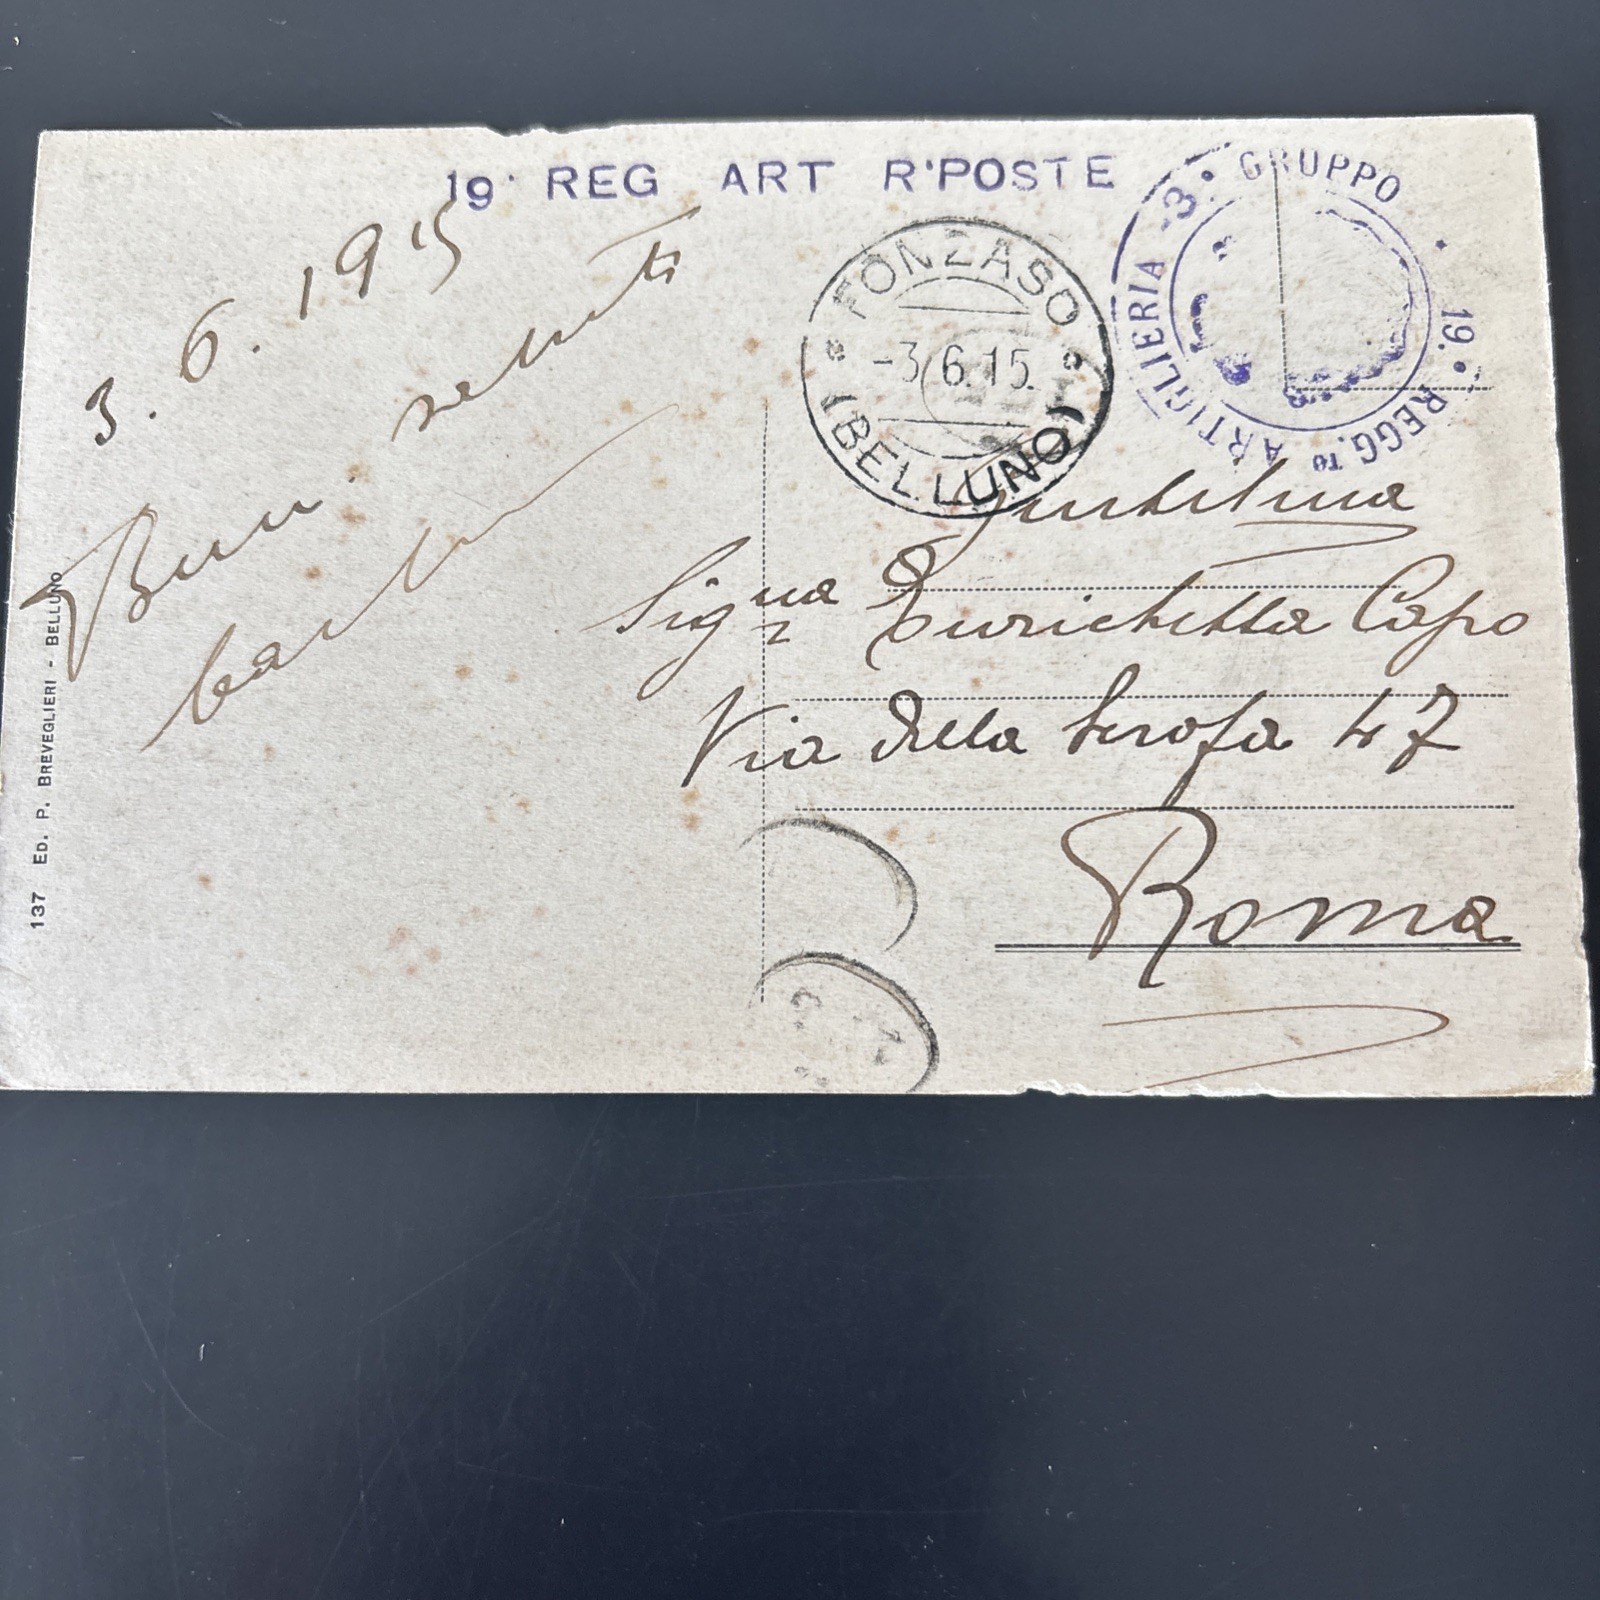 19° REG ART R'POSTE
3° GRUPPO
19° REGG.TO ARTIGLIERIA
FONZASO
-3.6.15.
(BELLUNO)
3. 6. 1915
Buni saluti
Gentilma
Signa Enrichetta Capo
Via della Scrofa 47
Roma
137 ED. P. BREVEGLIERI - BELLUNO